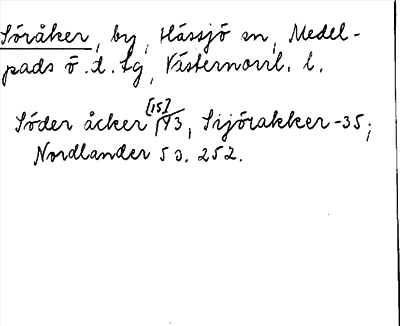 Söråker, by, Hässjö sn, Medel-
pads ö. d. tg, Västernorrl. l.
Söder åcker [15]43, Sijörakker -35;
Nordlander 50. 252.